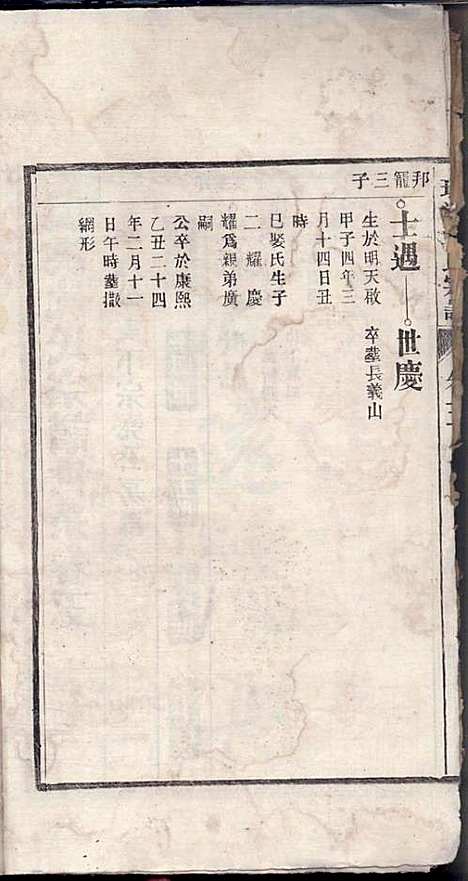 邦寵三子
士遇
世慶
生於明天啟
甲子四年三
月十四日丑
時
巳娶氏生子
二 耀 慶
耀為親弟廣
嗣
公卒於康熙
乙丑二十四
年二月十一
日午時葬撒
網形
卒葬長義山